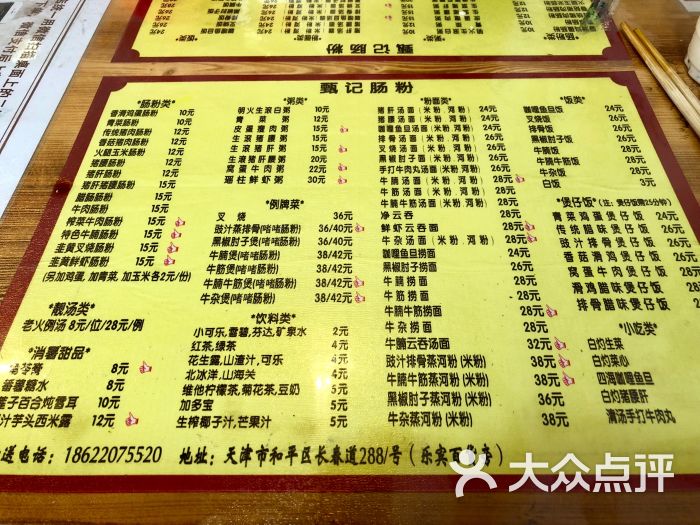 甄记肠粉
甄记肠粉
*肠粉类*
香滑鸡蛋肠粉 10元
青菜肠粉 10元
传统猪肉肠粉 12元
香菇猪肉肠粉 12元
火腿玉米肠粉 12元
猪腰肠粉 12元
猪肝肠粉 12元
猪肝猪腰肠粉 12元
腊肠肠粉 15元
牛肉肠粉 15元
榨菜牛肉肠粉 15元
特色牛腩肠粉 15元
韭黄叉烧肠粉 15元
韭黄鲜虾肠粉 15元
(另加鸡蛋,加青菜,加玉米各2元/份)
*靓汤类*
老火例汤 8元/位/28元/例
*消暑甜品*
苓膏 8元
番薯糖水 8元
莲子百合炖雪耳 10元
汁芋头西米露 12元
*粥类*
明火生滚白粥 10元
青菜粥 15元
皮蛋瘦肉粥 15元
生滚猪腰粥 15元
生滚猪肝粥 15元
生滚猪肝腰粥 20元
窝蛋牛肉粥 22元
瑶柱鲜虾粥 30元
*例牌菜*
叉烧 36元
豉汁蒸排骨(啫啫肠粉) 36/40元
黑椒肘子煲(啫啫肠粉) 36/40元
牛腩煲(啫啫肠粉) 38/42元
牛筋煲(啫啫肠粉) 38/42元
牛腩牛筋煲(啫啫肠粉) 38/42元
牛杂煲(啫啫肠粉) 38/42元
*饮料类*
小可乐,雪碧,芬达,矿泉水 2元
红茶,绿茶 4元
花生露,山渣汁,可乐 4元
北冰洋,山海关 4元
维他柠檬茶,菊花茶,豆奶 5元
加多宝 5元
生榨椰子汁,芒果汁 5元
*粉面类*
猪肝汤面(米粉 河粉) 24元
猪腰汤面(米粉 河粉) 24元
咖喱鱼旦汤面(米粉 河粉) 24元
排骨汤面(米粉 河粉) 26元
叉烧汤面(米粉 河粉) 26元
黑椒肘子面(米粉 河粉) 26元
手打牛肉丸汤面(米粉 河粉) 26元
牛腩汤面(米粉 河粉) 28元
牛筋汤面(米粉 河粉) 28元
净云吞 28元
鲜虾云吞面 28元
牛杂汤面(米粉 河粉) 28元
咖喱鱼旦捞面 24元
黑椒肘子捞面 26元
牛腩捞面 28元
牛筋捞面 28元
牛杂捞面 28元
牛腩云吞汤面 32元
豉汁排骨蒸河粉(米粉) 38元
牛腩牛筋蒸河粉(米粉) 38元
黑椒肘子蒸河粉(米粉) 38元
牛杂蒸河粉(米粉) 38元
*饭类*
咖喱鱼旦饭 24元
叉烧饭 26元
排骨饭 26元
黑椒肘子饭 26元
牛腩饭 28元
牛腩牛筋饭 28元
牛筋饭 28元
牛杂饭 28元
白饭 3元
*煲仔饭*(注:煲仔饭需25分钟)
青菜鸡蛋煲仔饭
传统腊味煲仔饭
豉汁排骨煲仔饭
香菇滑鸡煲仔饭
窝蛋牛肉煲仔饭
滑鸡腊味煲仔饭
排骨腊味煲仔饭
*小吃类*
白灼生菜
白灼菜心
四海咖喱鱼旦
白灼猪腰肝
清汤手打牛肉丸
送电话:18622075520 地址:天津市和平区长春道288/号(乐宾百货旁)
大众点评